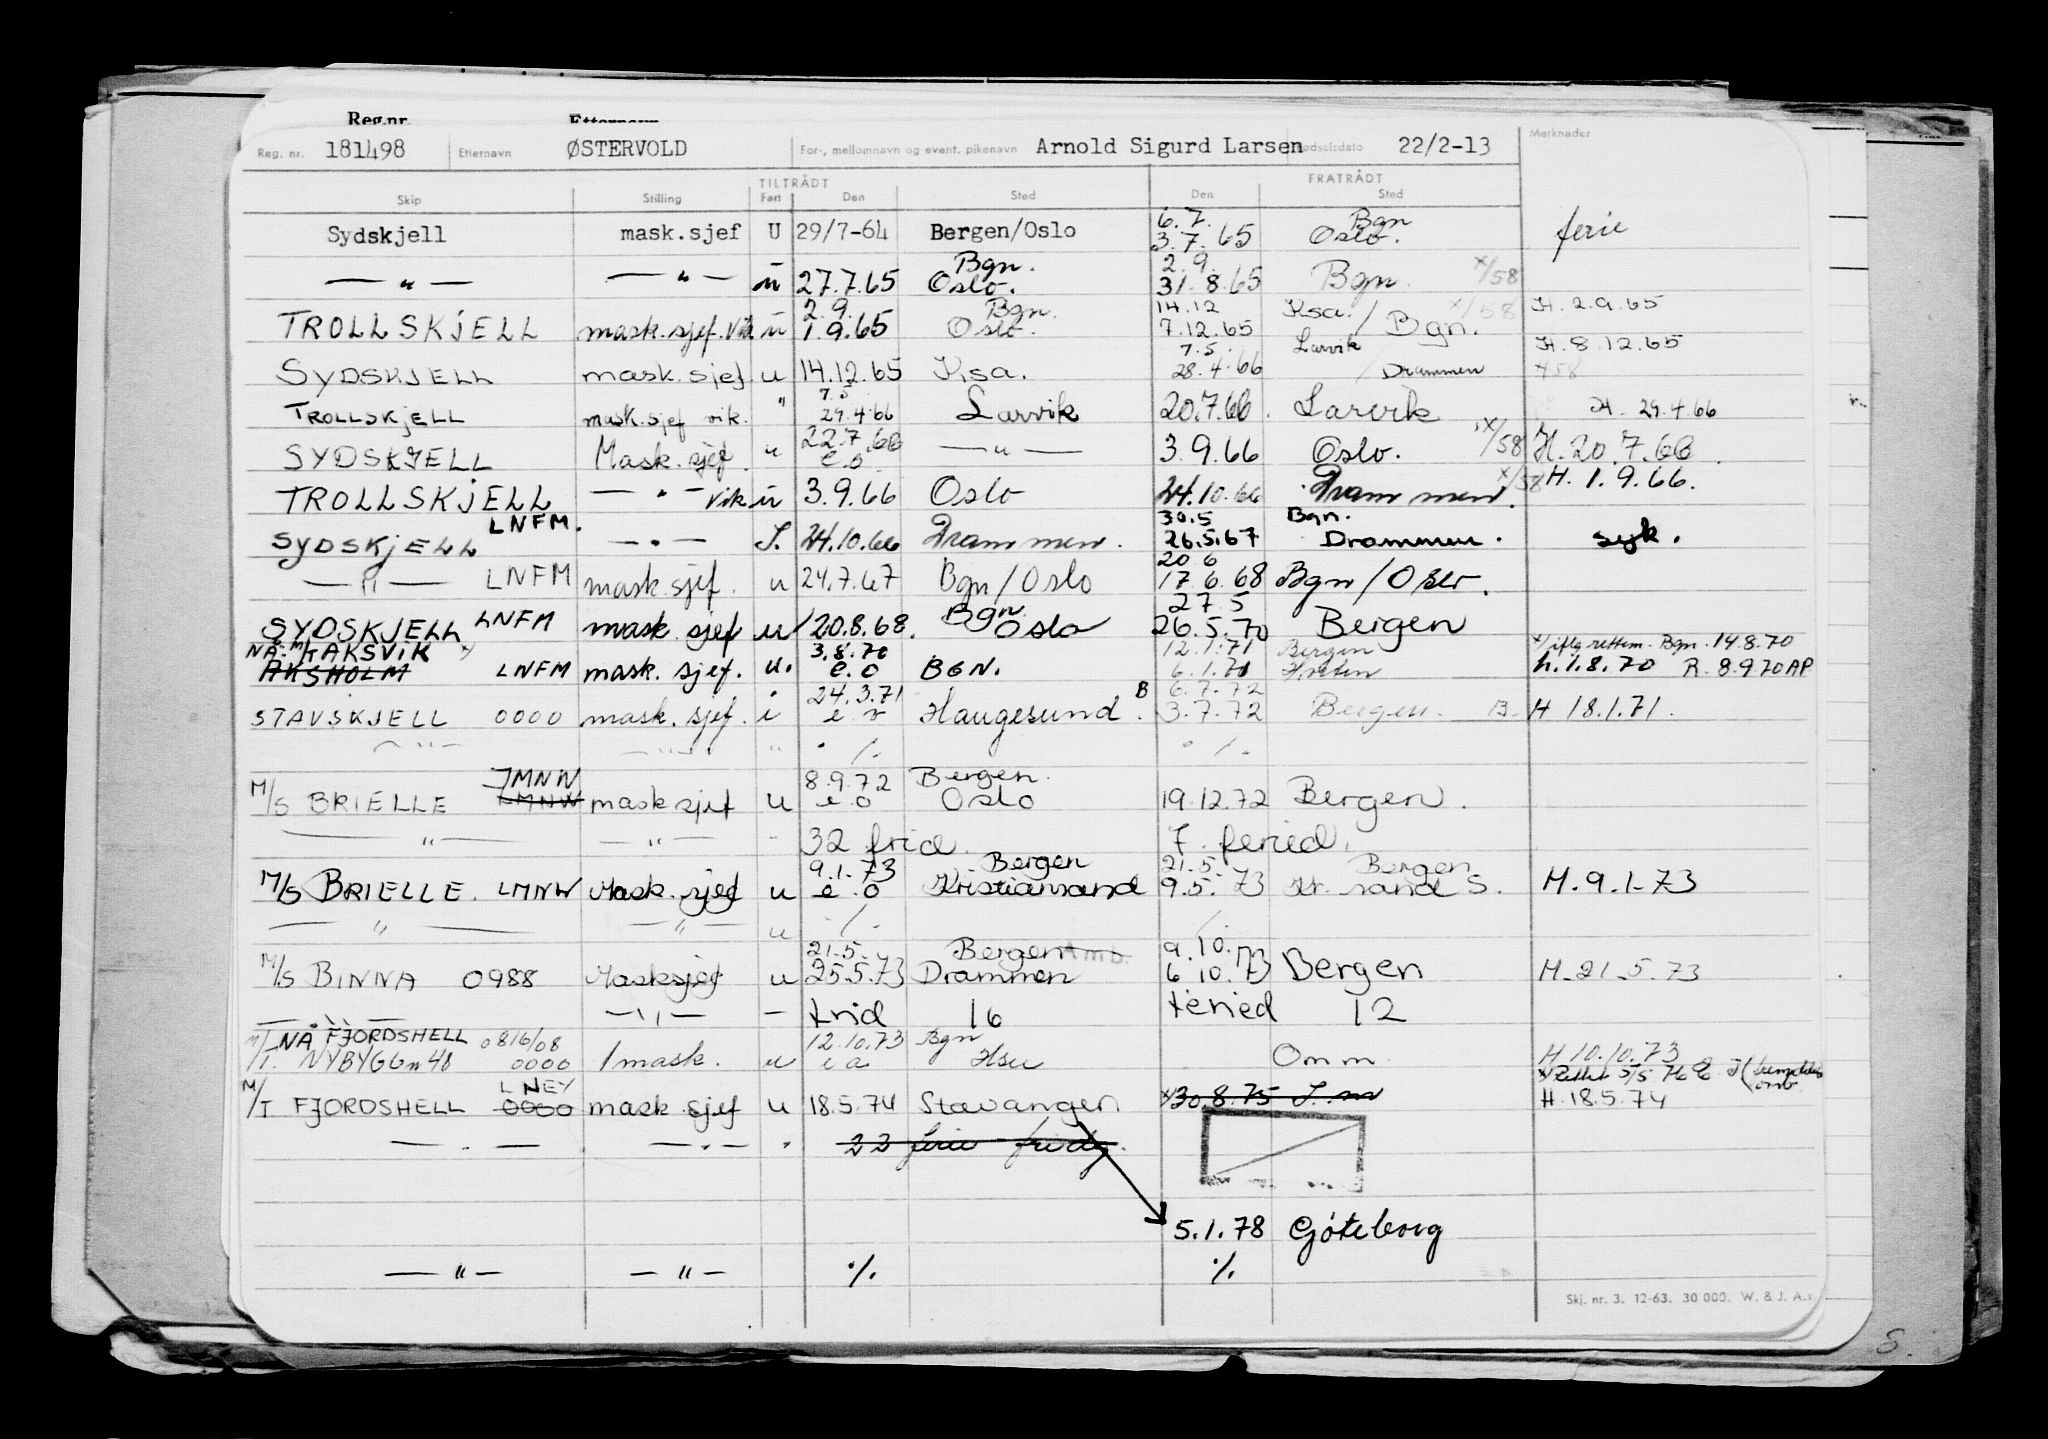 Reg.nr. Etternavn
Reg. nr. 181498 Etternavn ØSTERVOLD For-, mellomnavn og event. pikenavn Arnold Sigurd Larsen Fødselsdato 22/2-13 Merknader
TILTRÅDT FRATRÅDT
Skip Stilling Fart Den Sted Den Sted
6.7. Bgn
Sydskjell mask.sjef U 29/7-64 Bergen/Oslo 3.7.65 Oslo. ferie
Bgn. 2.9.
— " — — " — u 27.7.65 Oslo. 31.8.65 Bgn. x/58
2.9. Bgn. 14.12 Ksa./ x/58 H. 2.9.65
TROLLSKJELL mask.sjef.vik u 1.9.65 Oslo. 7.12.65 Bgn.
7.5. Larvik H. 8.12.65
SYDSKJELL mask.sjef. u 14.12.65 Ksa. 28.4.66 / Drammen x58
7.5
TROLLSKJELL mask.sjef vik. " 29.4.66 Larvik 20.7.66. Larvik H. 29.4.66
22.7.66
SYDSKJELL Mask.sjef. u e.o — " — 3.9.66 Oslo. x/58 H. 20.7.66.
TROLLSKJELL — " — vik u 3.9.66 Oslo 24.10.66 Drammen. x/58 H. 1.9.66.
LNFM. 30.5 Bgn.
SYDSKJELL — " — S. 24.10.66 Drammen. 26.5.67 Drammen. syk.
20 6
— " — LNFM mask sjef. u 24.7.67 Bgn/Oslo 17.6.68 Bgn/Oslo.
Bgn 27.5
SYDSKJELL LNFM mask. sjef u 20.8.68. Oslo 26.5.70 Bergen
NÅ: M/ KAKSVIK x) 3.8.70 12.1.71 Bergen x) iflg rettem. Bgn. 14.8.70
AKSHOLM LNFM mask. sjef. u. e.o BGN. 6.1.71 h. 1.8.70 R. 8.9.70 AP
24.3.71 B 6.7.72
STAVSKJELL 0000 mask. sjef. i e o Haugesund. 3.7.72 Bergen. B- H 18.1.71.
— " — — " — " ./. ./.
JMNW 8.9.72 Bergen.
M/S BRIELLE LMNW mask sjef u e o Oslo 19.12.72 Bergen.
— " — — " — - 32 frid. 7 feried.
9.1.73 Bergen 21.5. Bergen
M/S BRIELLE. LMNW Mask. sjef u e o Kristiansand 9.5.73 Kr. sand S. H. 9.1-73
— " — — " — u ./. ./.
21.5. Bergen Amb. 9.10.73
M/S BINNA 0988 Masksjef u 25.5.73 Drammen 6 10.73 Bergen H. 21.5.73
— " — — " — - frid 16 feried 12
NÅ FJORDSHELL 0816/08 12.10.73 Bgn H 10.10.73
M/T. NYBYGG n 48 0000 1 mask. u e o Hsu Omm
LNEY
M/T FJORDSHELL 0000 mask sjef u 18.5.74 Stavanger x30.8.75 H. 18.5.74
— " — — " — " 22 ferie frid.
5.1.78 Göteborg
— " — — " — ./. ./.
Skj. nr. 3. 12-63. 30 000. W. & J. A.s.
S.